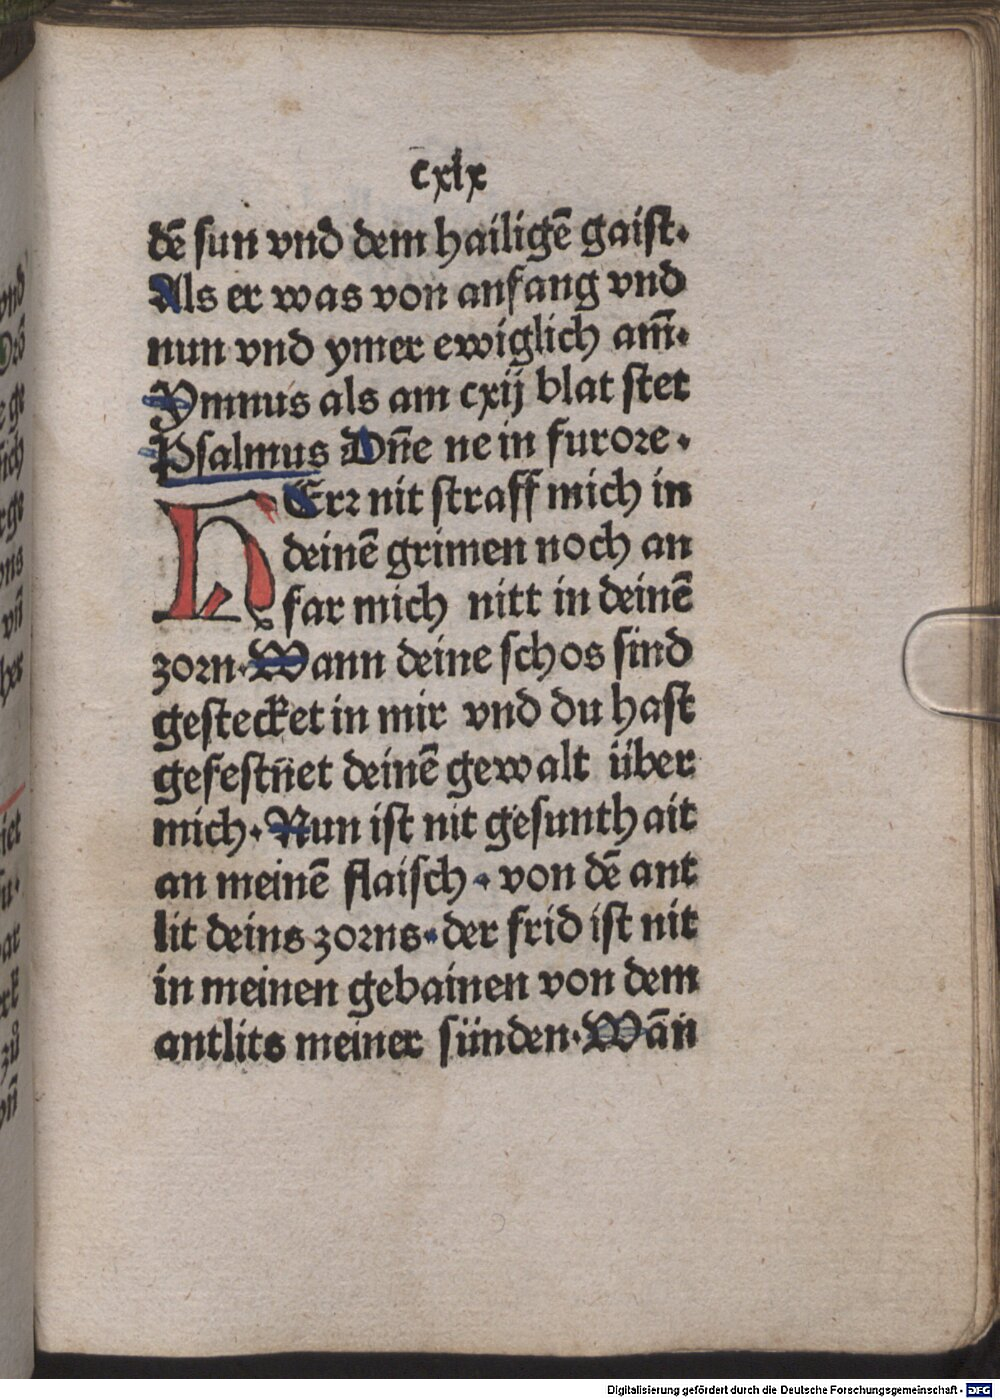 cxlx
dē sun vnd dem hailigē gaist.
Als er was von anfang vnd
nun vnd ymer ewiglich am̄.
Ymnus als am cxij blat stet
Psalmus Dn̄e ne in furore.
HErr nit straff mich in
deinē grimen noch an
far mich nitt in deinē
zorn. Wann deine schos sind
gestecket in mir vnd du hast
gefestn̄et deinē gewalt über
mich. Nun ist nit gesunthait
an meinē flaisch. von dē ant
lit deins zorns. der frid ist nit
in meinen gebainen von dem
antlits meiner sünden. Wān
vnd
ich
vn̄
iet
zů
vn̄
Digitalisierung gefördert durch die Deutsche Forschungsgemeinschaft - DFG